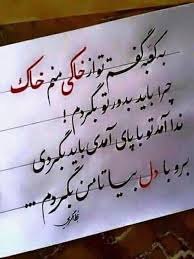 به کعبه گفتم تو از خاکی منم خاک
چرا باید به دور تو بگردم !
ندا آمد تو با پای آمدی باید بگردی
برو با دل بیا تا من بگردم ...